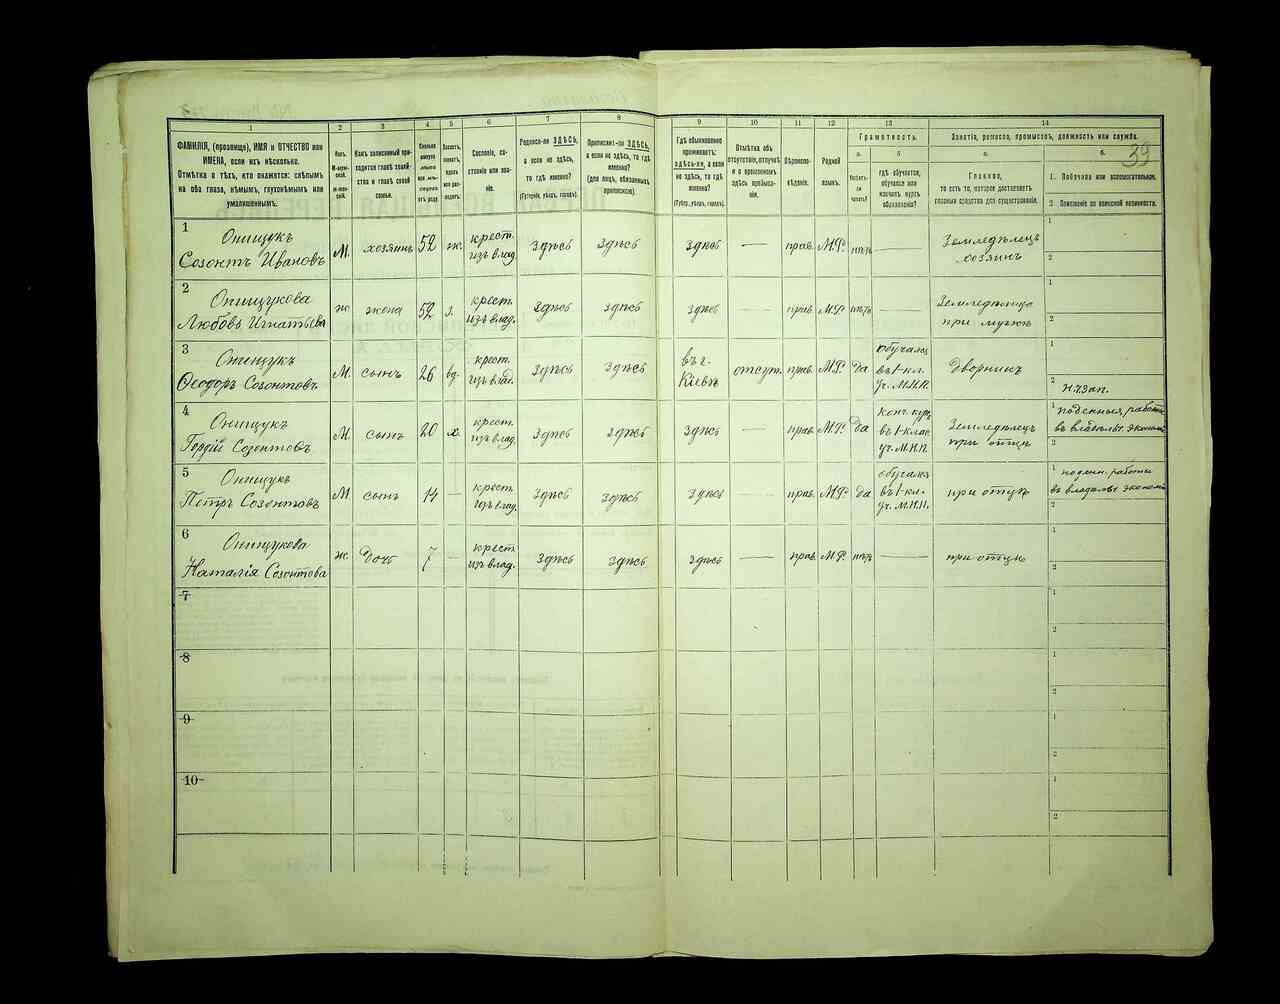 39
1 2 3 4 5 6 7 8 9 10 11 12 13 14
ФАМИЛІЯ, (прозвище), ИМЯ и ОТЧЕСТВО или
ИМЕНА, если ихъ нѣсколько.
Отмѣтка о тѣхъ, кто окажется: слѣпымъ
на оба глаза, нѣмымъ, глухонѣмымъ или
умалишеннымъ.
Какъ записанный при-
ходится главѣ хозяй-
ства и главѣ своей
семьи.
Сословіе, со-
стояніе или зва-
ніе.
Родился-ли ЗДѢСЬ,
а если не здѣсь,
то гдѣ именно?
(Губернія, уѣздъ, городъ).
Приписанъ-ли ЗДѢСЬ,
а если не здѣсь, то гдѣ
именно?
(для лицъ, обязанныхъ
припискою).
Гдѣ обыкновенно
проживаетъ:
здѣсь-ли, а если
не здѣсь, то гдѣ
именно?
(Губер., уѣздъ, городъ).
Отмѣтка объ
отсутствіи, отлучкѣ
и о временномъ
здѣсь пребыва-
ніи.
Вѣроиспо-
вѣданіе.
Родной
языкъ.
Грамотность.
а. б
Умѣетъ-
ли
читать?
гдѣ обучается,
обучался или
кончилъ курсъ
образованія?
Занятіе, ремесло, промыселъ, должность или служба.
а. б.
Главное,
то есть то, которое доставляетъ
главныя средства для существованія.
1. Побочное или вспомогательное.
2 Положеніе по воинской повинности.
1
Онищукъ
Созонтъ Ивановъ М. хозяинъ 52 ж. крест. изъ влад. здѣсь здѣсь здѣсь — прав. М.Р. нѣтъ — Земледѣлецъ хозяинъ
1
2
2
Онищукова
Любовь Игнатьева ж жена 52 з. крест. изъ влад. здѣсь здѣсь здѣсь — прав. М.Р. нѣтъ — при мужѣ
1
2
3
Онищукъ
Ѳеодоръ Созонтовъ М. сынъ 26 крест. изъ влад. здѣсь здѣсь въ г. Кіевѣ отсут. прав. М.Р. да обучался въ 1-кл. уч. М.Н.П. Дворникъ
1
2 н.ч.зап.
4
Онищукъ
Гордій Созонтовъ М. сынъ 20 х. крест. изъ влад. здѣсь здѣсь здѣсь — прав. М.Р. да конч. курс. въ 1-клас. уч. М.Н.П. Земледѣлецъ при отцѣ
1 поденныя работы
въ владѣльч. эконом
2
5
Онищукъ
Петръ Созонтовъ М. сынъ 14 — крест. изъ влад. здѣсь здѣсь здѣсь — прав. М.Р. да обучался въ 1-кл. уч. М.Н.П. при отцѣ
1 поденн. работы
въ владѣльч эконом
2
6
Онищукова
Наталія Созонтова ж. дочь 7 — крест. изъ влад. здѣсь здѣсь здѣсь — прав. М.Р. нѣтъ — при отцѣ
1
2
7
1
2
8
1
2
9
1
2
10
1
2